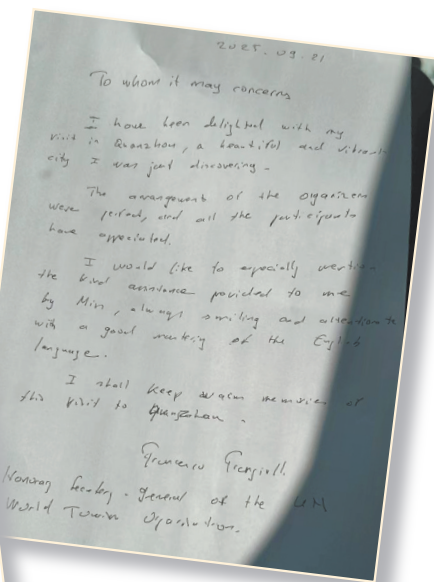 2025.09.21
To whom it may concerns
I have been delighted with my
visit in Quanzhou, a beautiful and vibrant
city I was just discovering.
The arrangements of the organizers
were perfect, and all the participants
have appreciated.
I would like to especially mention
the kind assistance provided to me
by always smiling and
with a good mastering of the English
language.
I shall keep warm memories of
this visit to Quanzhou.
Francesco
Honorary Secretary-general of the UN
World Tourism Organization.